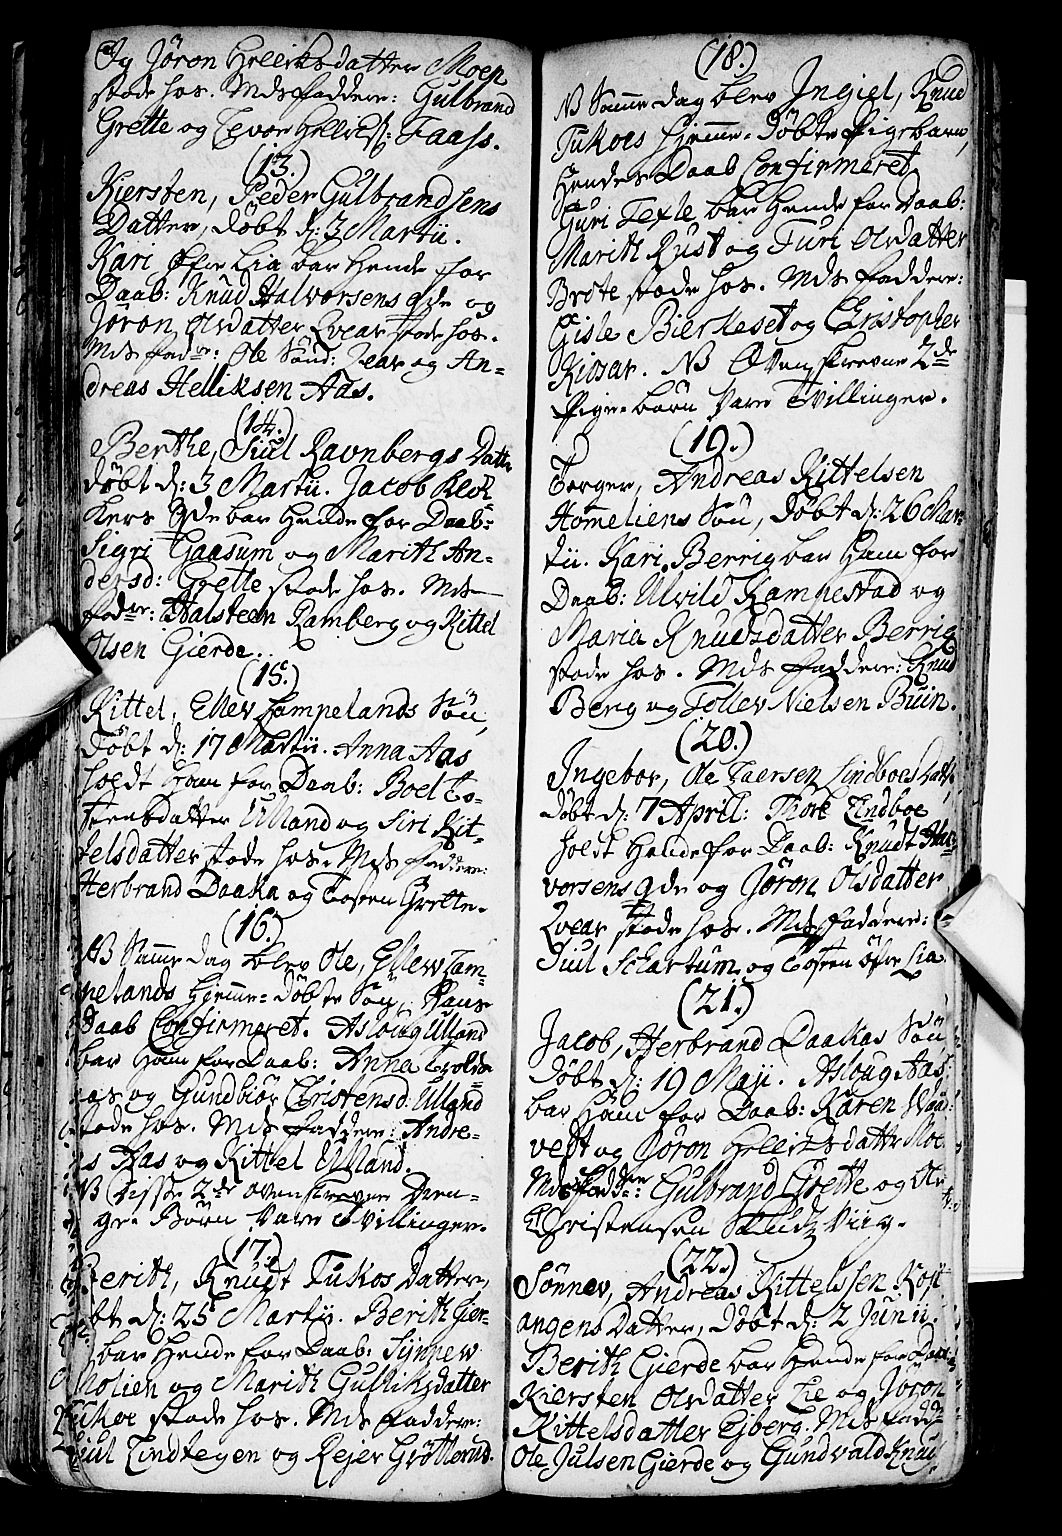 Og Jøron Helliksdatter Moen
stode hos. Mds faddere: Gulbrand
Grette og Tevor Hellics: Faass.
(13.)
Kiersten, Peder Gulbrandsens
Datter, døbt d: 3 Martii.
Kari Øfre Lia bar Hende for
Daab: Knud Halvorsens qde og
Jøron Olsdatter Qvear stode hos.
Mds fadre: Ole Sønd: Qvear og An=
dreas Helliksen Aas.
(14.)
Berthe, Juul Ravnbergs Datter
døbt d: 3 Martii. Jacob Klok
kers qde bar Hende for Daab:
Sigri Gaasum og Marith An=
dersd: Grette stode hos. Mds
fadre: Halsteen Ramberg og Kittel
Olsen Gierde.
(15.)
Kittel, Ellev Lampelands Søn,
døbt d: 17 Martii. Anna Aas
holdt Ham for Daab: Boel To=
steensdatter Ulland og Siri Kit=
telsdatter stode hos. Mds faddere:
Herbrand Daaka og Tosten Grette.
(16.)
NB Samme dag blev Ole, Ellev Lam=
pelands Hjemme=døbte Søn, Hans
Daab Confirmeret. Asloug Ulland
bar Ham for Daab: Anna
aas og Gundbiør Christensd: Ulland
stode hos. Mds faddere: Andre=
as Aas og Kittel Ulland.
NB Disse 2de ovenskrevne Dren=
ge=Børn vare Tvillinger.
(17.)
Berith, Knudt Tukos Datter,
døbt d: 25 Martii. Berith Gier=
bar Hende for Daab: Synnev
Molien og Marith Gulliksdatter
Tukoe stode hos. Mds faddere:
Juul Lindtegen og Rejer Grøtterud.
(18.)
NB Samme dag blev Ingiel, Knud
Tukoes Hjemme=døbte Pigebarn,
Hendes Daab Confirmeret.
Guri Texle bar Hende for Daab:
Marith Rust og Turi Olsdatter
Brote stode hos. Mds faddere:
Gisle Bierkeset og Christopher
Kiosar. NB Ovenskrevne 2de
Pige=børn vare Tvillinger.
(19.)
Torger, Andreas Kittelsen
Homeliens Søn, døbt d: 26 Mar=
tii. Kari Berrig bar Ham for
Daab: Ulvild Kampestad og
Maria Knudsdatter Berrig
stode hos. Mds faddere: Knud
Berg og Tollev Nielsen Buin.
(20.)
Ingebor, Ole Laersen Lindboes Datter
døbt d: 7 April: Thore Lindboe
holdt Hende for Daab: Knudt Hal=
vorsens qde og Jøron Olsdatter
Qvear stode hos. Mds faddere:
Juul Schartum og Tosten Øfre Lia.
(21.)
Jacob, Herbrand Daakas Søn
døbt d: 19 Maji. Asloug Aas
bar Ham for Daab: Karen
og Jøron Helliksdatter Moe
Mds faddre: Gulbrand Grette og Ole
Christensen
(22.)
Sønnev, Andreas Kittelssen Koft
angens Datter, døbt d: 2 Junii.
Berith Gierde bar Hende for Daab:
Kiersten Olsdatter Lie og Jøron
Kittelsdatter Ejberg. Mds fadd:
Ole Julsen Gierde og Gundvald Knud